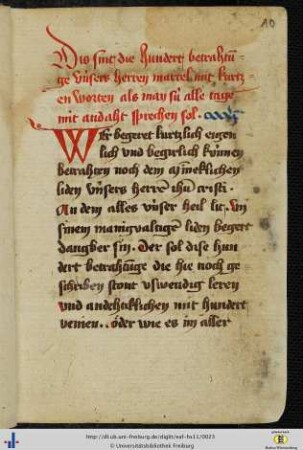 10
Diß sint die hundert betrahtū
ge vnsers herren martel mit kurtz
en worten als man sú alle tage
mit andaht sprechen sol.
WEr begeret kurtzlich eigen
lich vnd begirlich kúnnen
betrahten noch dem
liden vnsers herrē ihū cristi.
An dem alles vnser heil lit. vn̄
sinem manigualtigē liden begert
dangber sin. Der sol dise hun
dert betrahtūge die hie noch ge
schriben stont vßwendig leren
vnd andehtklichen mit hundert
venien. oder wie es im aller
http://dl.ub.uni-freiburg.de/diglit/
© Universitätsbibliothek Freiburg